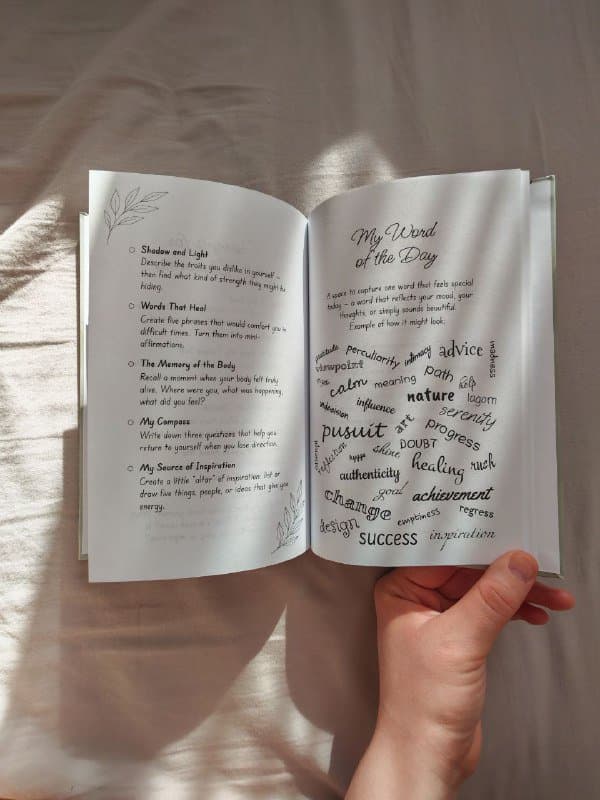 Shadow and Light
Describe the traits you dislike in yourself –
then find what kind of strength they might be
hiding.
Words That Heal
Create five phrases that would comfort you in
difficult times. Turn them into mini-
affirmations.
The Memory of the Body
Recall a moment when your body felt truly
alive. Where were you, what was happening,
what did you feel?
My Compass
Write down three questions that help you
return to yourself when you lose direction.
My Source of Inspiration
Create a little "altar" of inspiration: list or
draw five things, people, or ideas that give you
energy.
My Word
of the Day
A space to capture one word that feels special
today – a word that reflects your mood, your
thoughts, or simply sounds beautiful.
Example of how it might look:
peculiarity intimacy advice madness
viewpoint
calm meaning path help
influence nature lagom
serenity
pusuit art progress
reflection hygge shine DOUBT
authenticity healing rush
goal achievement
change emptiness regress
design
success inspiration